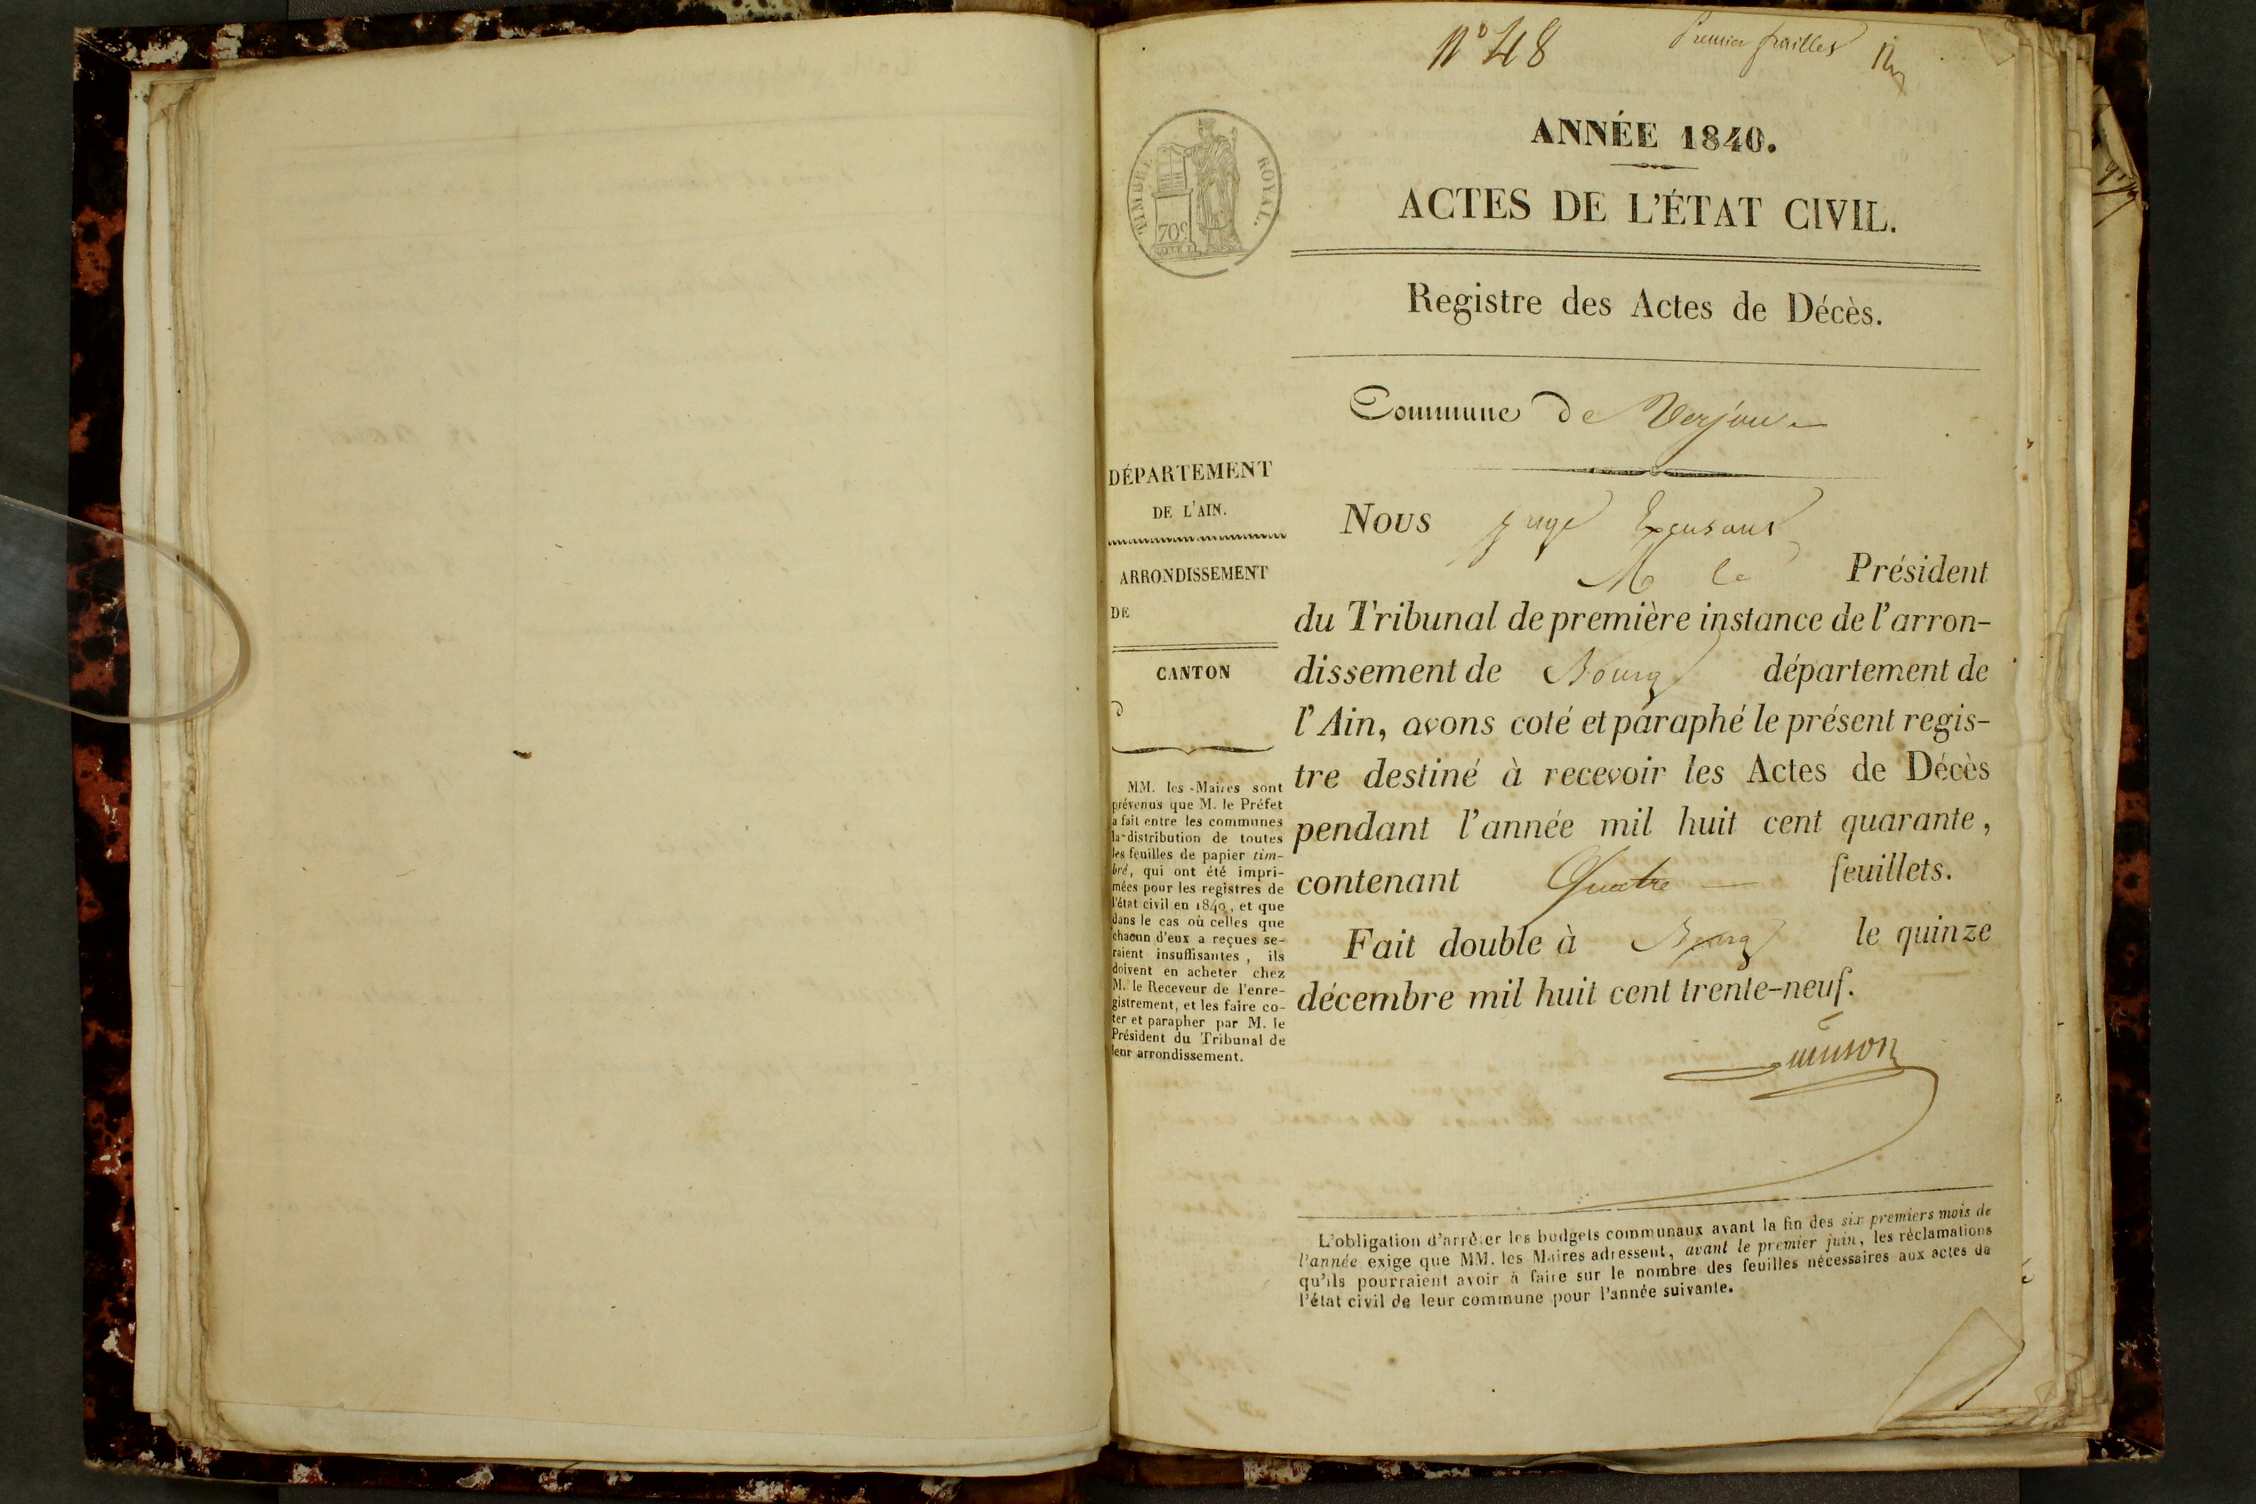 N° 48
Premier feuillet
TIMBRE ROYAL.
70c
ANNÉE 1840.
ACTES DE L'ÉTAT CIVIL.
Registre des Actes de Décès.
Commune de Verjon
DÉPARTEMENT
DE L'AIN.
ARRONDISSEMENT
DE
CANTON
d
MM. les Maires sont
prévenus que M. le Préfet
a fait entre les communes
la distribution de toutes
les feuilles de papier tim-
bré, qui ont été impri-
mées pour les registres de
l'état civil en 1840, et que
dans le cas où celles que
chacun d'eux a reçues se-
raient insuffisantes, ils
doivent en acheter chez
M. le Receveur de l'enre-
gistrement, et les faire co-
ter et parapher par M. le
Président du Tribunal de
leur arrondissement.
Nous juge
M le Président
du Tribunal de première instance de l'arron-
dissement de Bourg département de
l'Ain, avons coté et paraphé le présent regis-
tre destiné à recevoir les Actes de Décès
pendant l'année mil huit cent quarante,
contenant Quatre feuillets.
Fait double à Bourg le quinze
décembre mil huit cent trente-neuf.
L'obligation d'arrêter les budgets communaux avant la fin des six premiers mois de
l'année exige que MM. les Maires adressent, avant le premier juin, les réclamations
qu'ils pourraient avoir à faire sur le nombre des feuilles nécessaires aux actes de
l'état civil de leur commune pour l'année suivante.